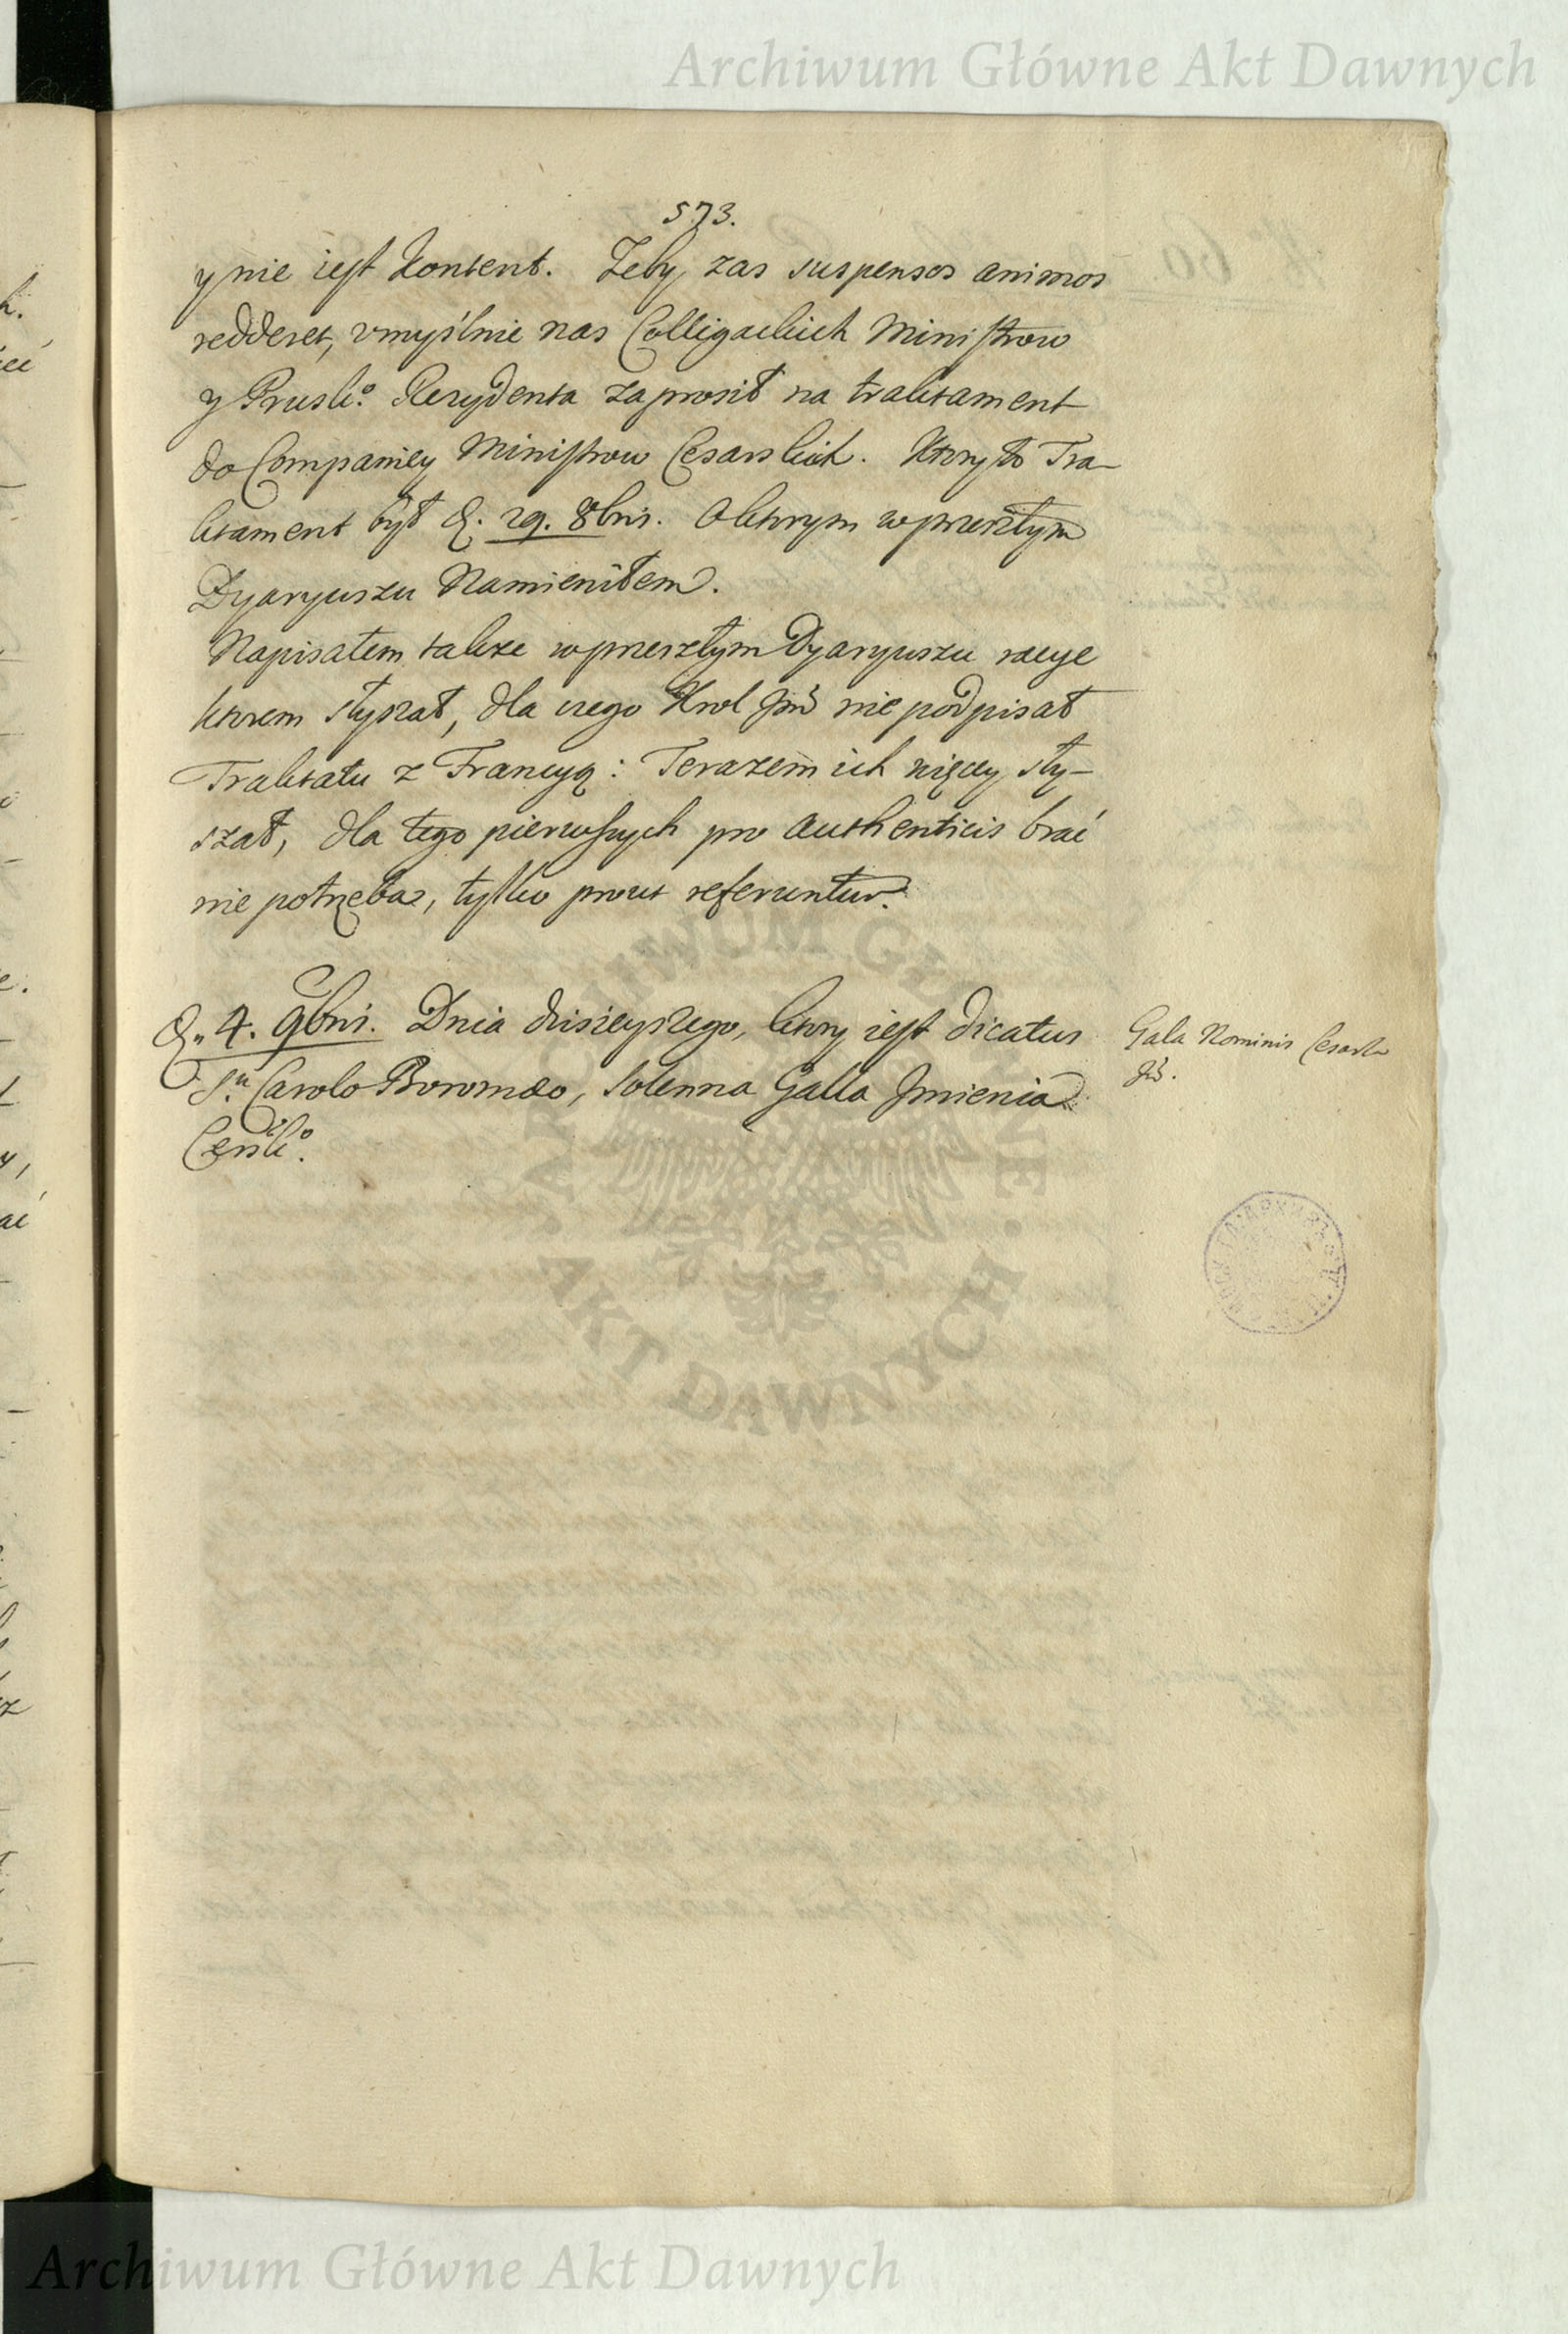 Archiwum Główne Akt Dawnych
573.
y nie iest Kontent. Żeby zas suspensos animos
redderet, vmyślnie nas Colligackich Ministrow
y Prusk:o Rezydenta zaprosił na traktament
do Companiey Ministrow Cesarskich. Ktory to Tra-
ktament był d. 29. 8bris. O ktorym w przeszłym
Dyaryuszu Namieniłem.
Napisałem także w przeszłym Dyaryuszu racye
ktorem słyszał, dla czego Krol Jmć nie podpisał
Traktatu z Francyą: Terazem ich więcey sły-
szał, dla tego pierwszych pro authenticis brać
nie potrzeba, tylko prout referuntur.
d. 4. 9bris. Dnia dzisieyszego, ktory iest dicatus
Sn Carolo Boromæo, solenna Galla Jmienia
Cerskio.
Gala Nominis Cesarza
Jmć.
ARCHIWUM GŁÓWNE AKT DAWNYCH
Archiwum Główne Akt Dawnych